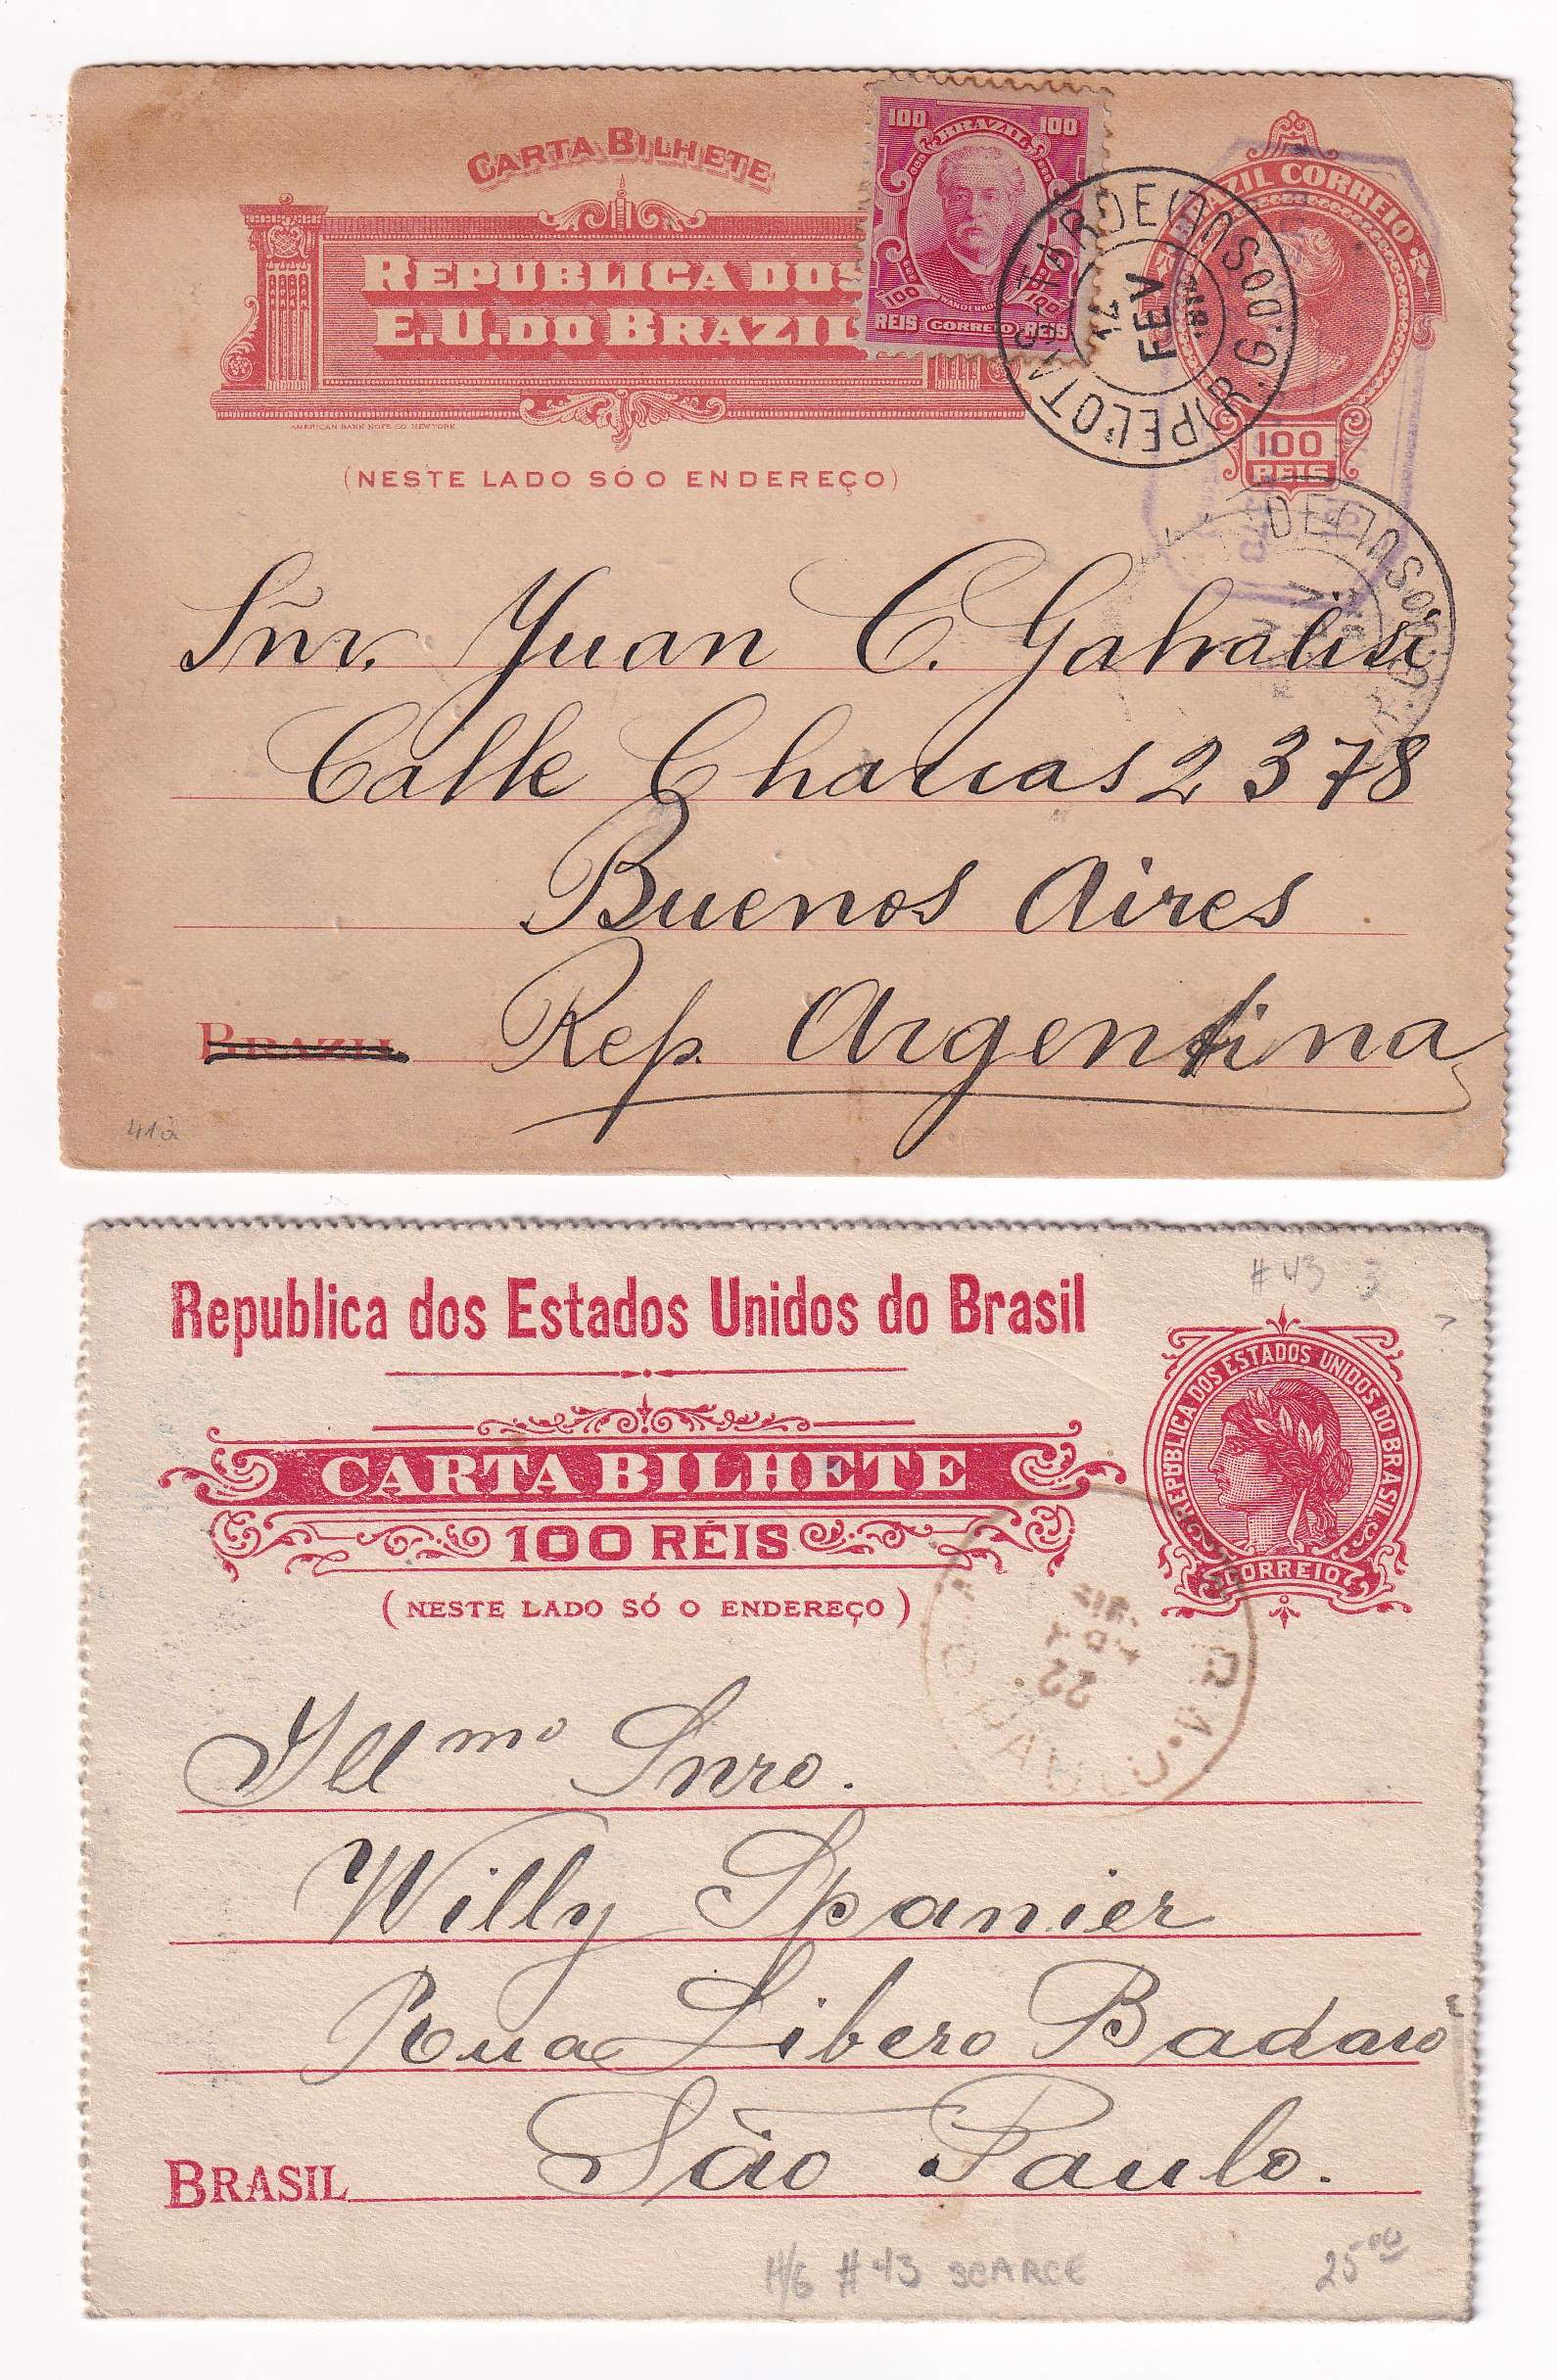 CARTA BILHETE
100 BRAZIL 100
REPUBLICA DOS
E. U. DO BRAZIL
100 WANDENKOLK 100
REIS CORREIO REIS
BRAZIL CORREIO
100
REIS
AMERICAN BANK NOTE CO. NEW YORK
(NESTE LADO SÓ O ENDEREÇO)
PELOTAS
12
FEV
(R. G. DO SUL)
Sñr. Juan C.
Calle Charcas 2378
Buenos Aires
BRAZIL Rep. Argentina
41a
#43 3
Republica dos Estados Unidos do Brasil
REPUBLICA DOS ESTADOS UNIDOS DO BRASIL
CORREIO
CARTA BILHETE
100 RÉIS
(NESTE LADO SÓ O ENDEREÇO)
22
Illmo Snro.
Willy Spanier
Rua Libero Badaró
BRASIL São Paulo.
H/G #43 SCARCE 25.00